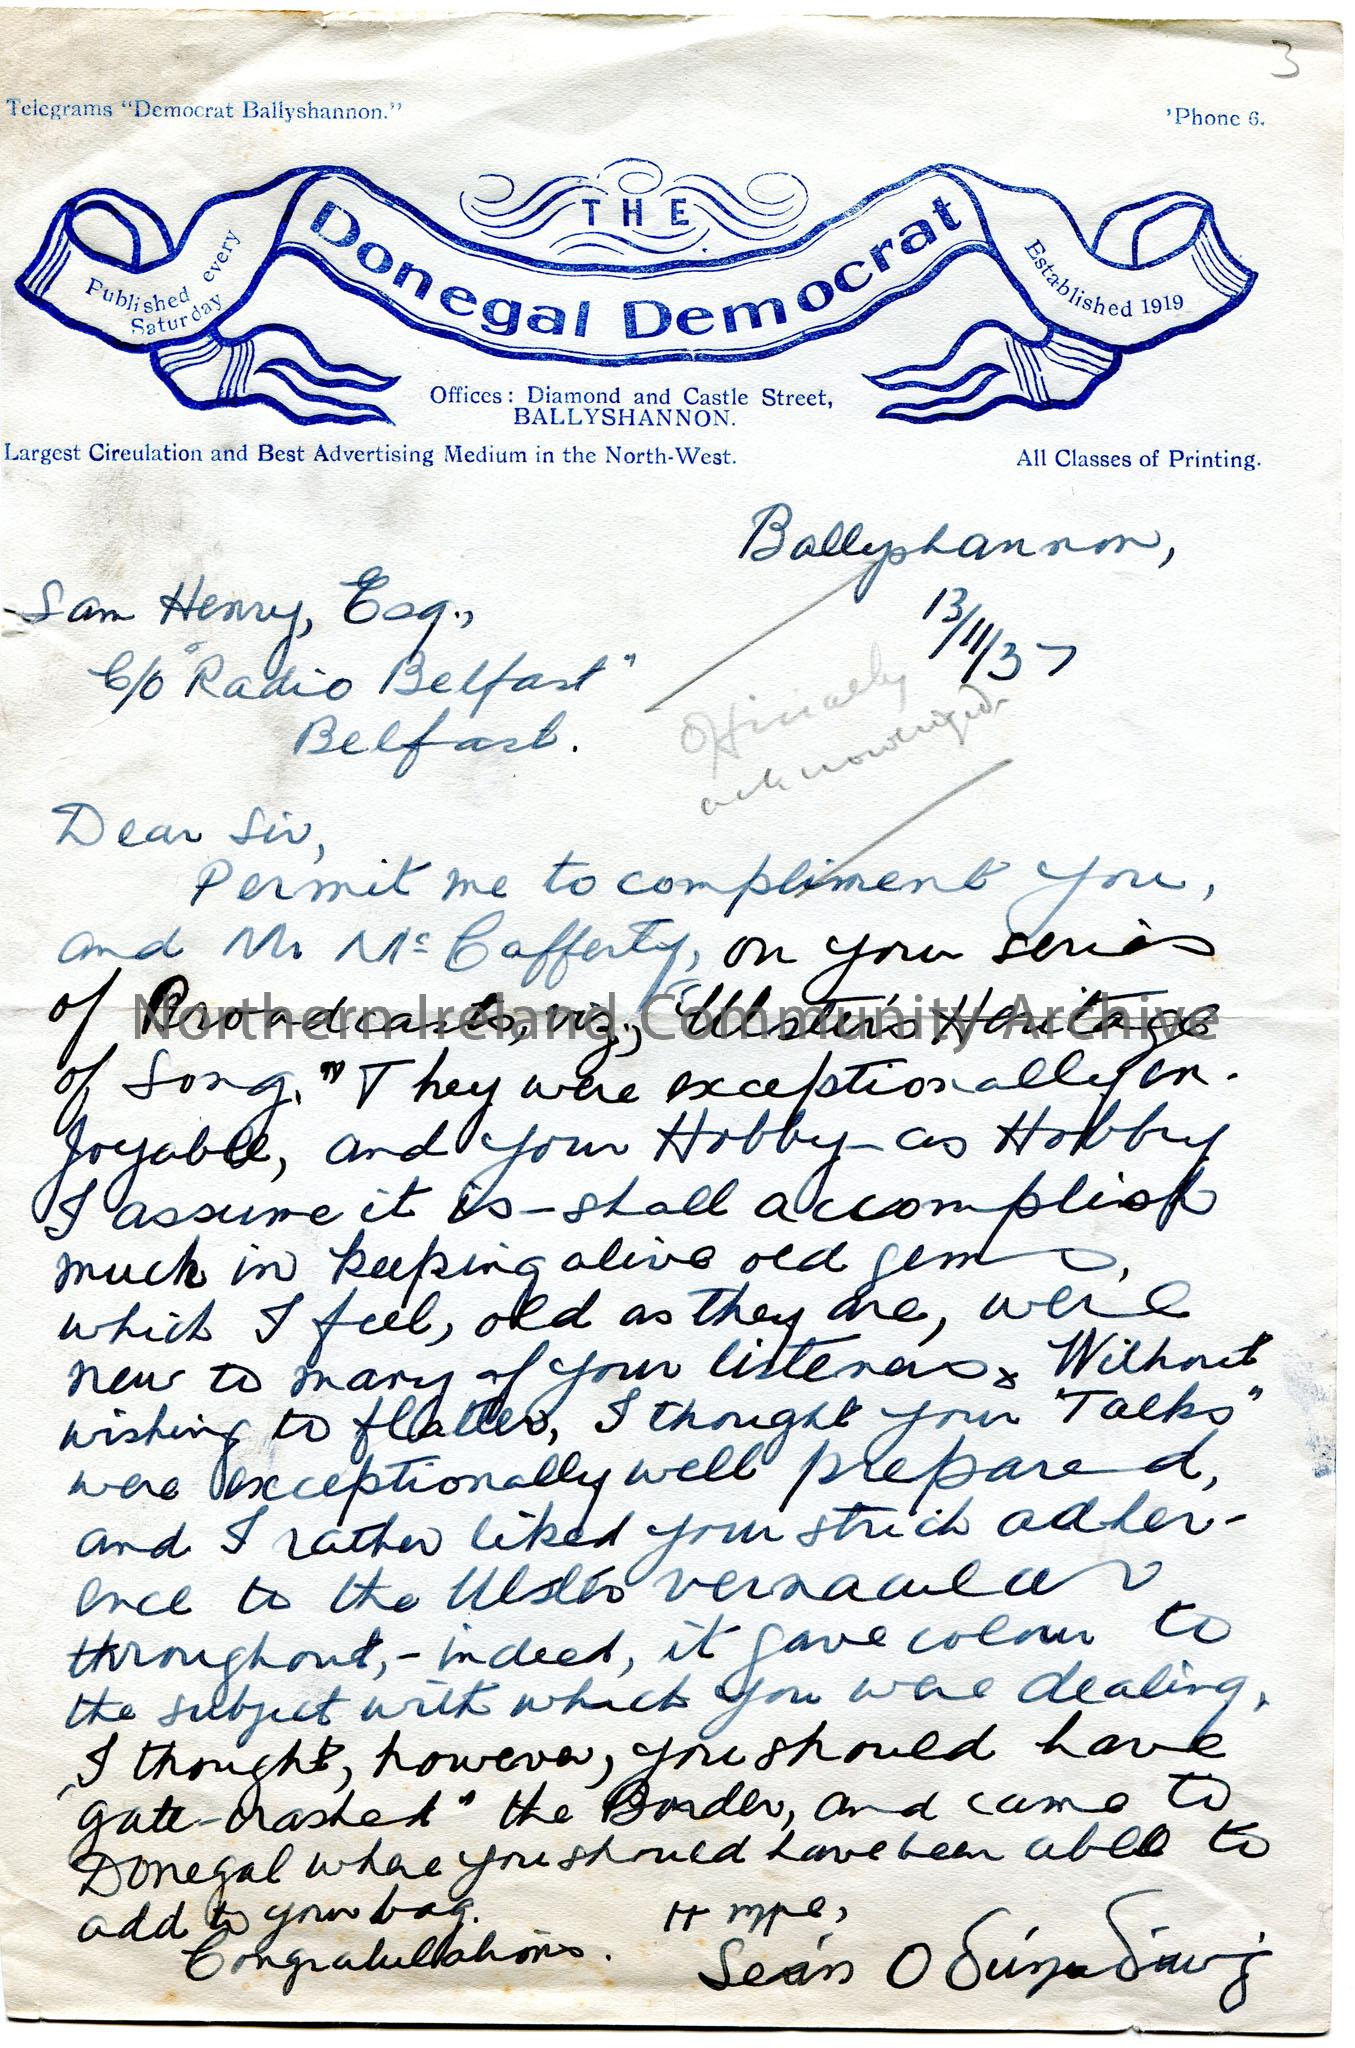 3
Telegrams "Democrat Ballyshannon."
'Phone 6.
THE
Donegal Democrat
Published every
Saturday
Established 1919
Offices: Diamond and Castle Street,
BALLYSHANNON.
Largest Circulation and Best Advertising Medium in the North-West.
All Classes of Printing.
Ballyshannon,
13/11/37
Sam Henry, Esq.,
C/o "Radio Belfast"
Belfast.
Officially
acknowledged.
Dear Sir,
Permit me to compliment you,
and Mr McCafferty, on your series
of Broadcasts, viz., "Ulster's Heritage
of Song." They were exceptionally en-
joyable, and your Hobby - as Hobby
I assume it is - shall accomplish
much in keeping alive old gems,
which I feel, old as they are, were
new to many of your listeners. Without
wishing to flatter, I thought your "Talks"
were exceptionally well prepared,
and I rather liked your strict adher-
ence to the Ulster vernacular
throughout, - indeed, it gave colour to
the subject with which you were dealing.
I thought, however, you should have
"gate-crashed" the Border, and came to
Donegal where you should have been able to
add to your bag.
Congratulations.
Seán O
Northern Ireland Community Archive